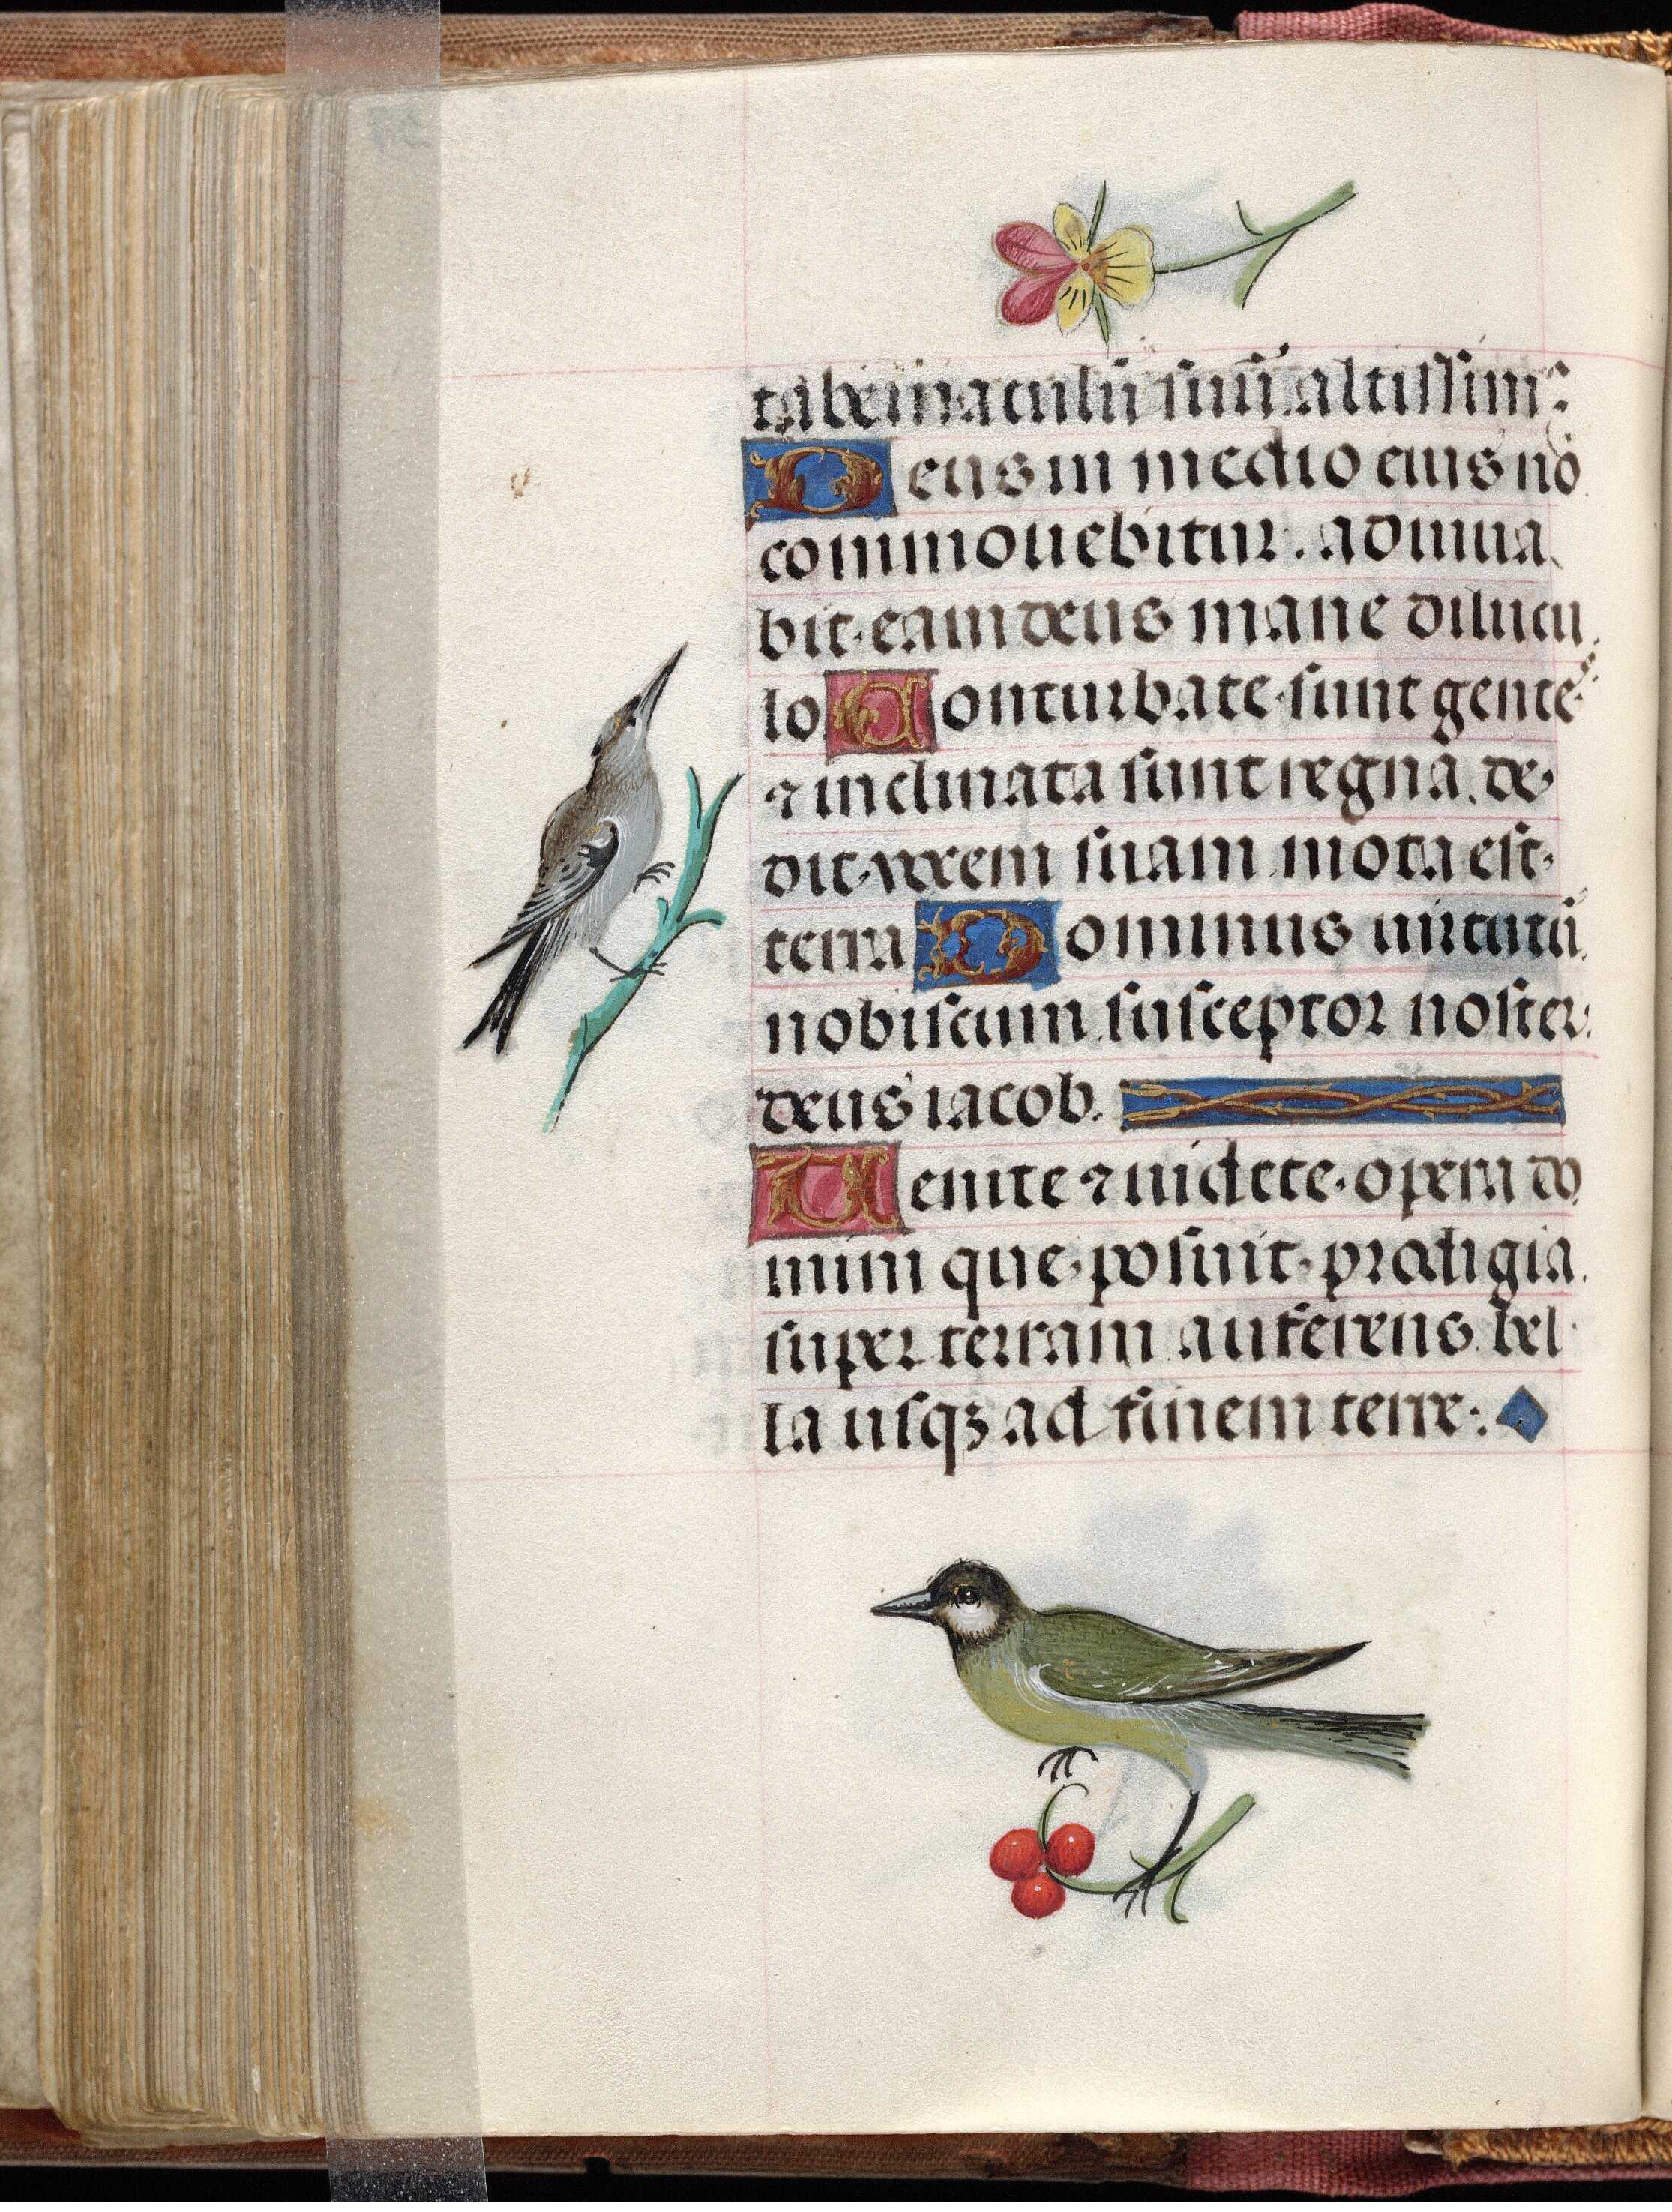 tabernaculū suū altissimꝰ
Deus in medio eius nō
commouebitur. adiuua
bit eam deus mane dilucu
lo Conturbate sunt gentes
⁊ inclinata sunt regna. de
dit vocem suam mota est
terra Dominus uirtutū
nobiscum susceptor noster
deus iacob.
Uenite ⁊ uidete opera do
mini que posuit prodigia
super terram auferens bel
la usqꝫ ad finem terre.